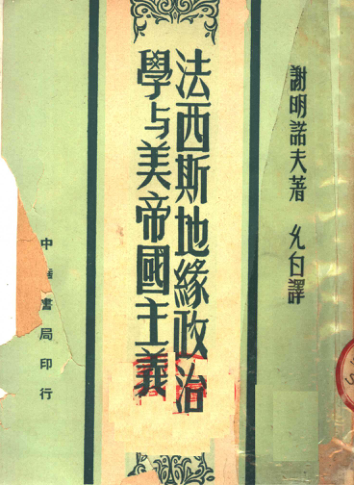 謝明諾夫著 允白譯
法西斯地緣政治
學与美帝國主義
中華書局印行